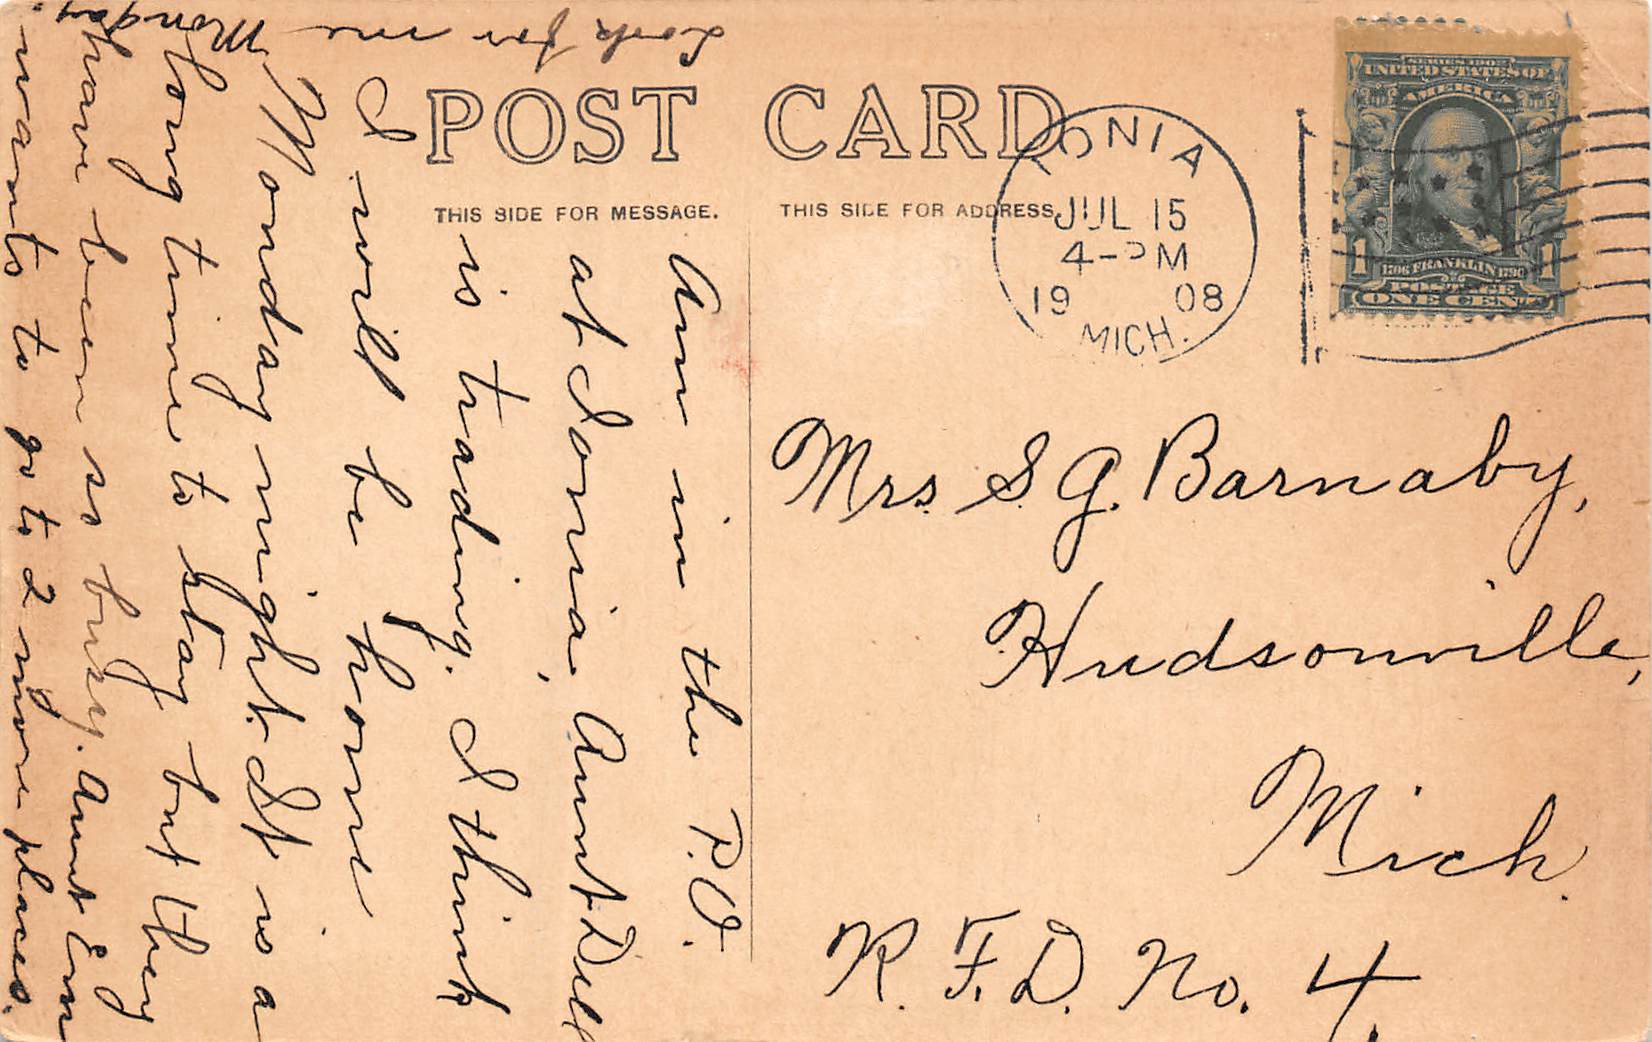 POST CARD
THIS SIDE FOR MESSAGE.
THIS SIDE FOR ADDRESS
IONIA
JUL 15
4-PM
1908
MICH.
SERIES 1902
UNITED STATES OF
AMERICA
1706 FRANKLIN 1790
POSTAGE
1 ONE CENT 1
Am in the P.O.
at Ionia, Aunt Dell
is trading. I think
I will be home
Monday night. It is a
long time to stay but they
have been so busy. Aunt Em
wants to go to 2 more places.
Look for me Monday.
Mrs. S. G. Barnaby,
Hudsonville,
Mich.
R. F. D. No. 4.